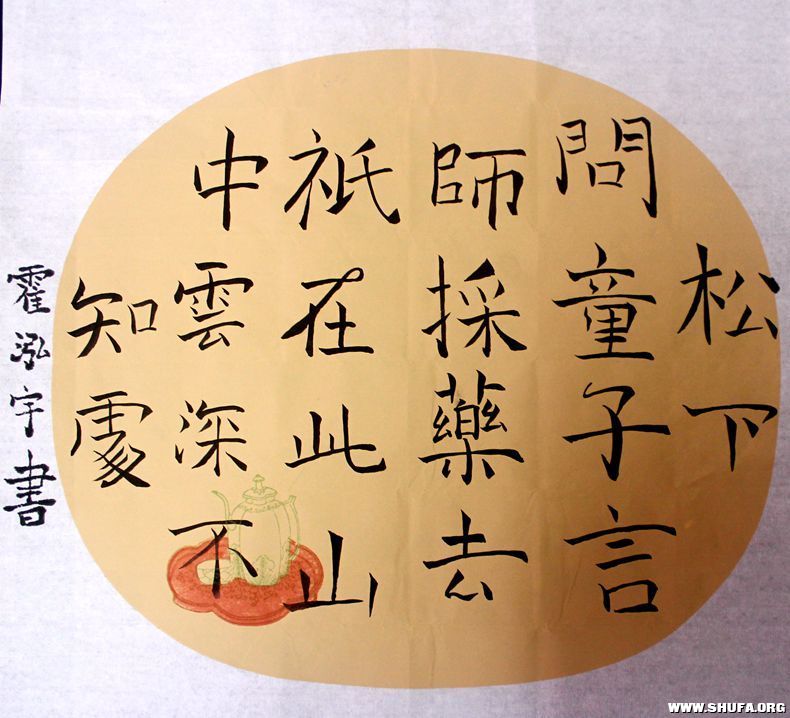 松下
問童子言
師採藥去
祇在此山
中雲深不
知處
霍泓宇書
WWW.SHUFA.ORG